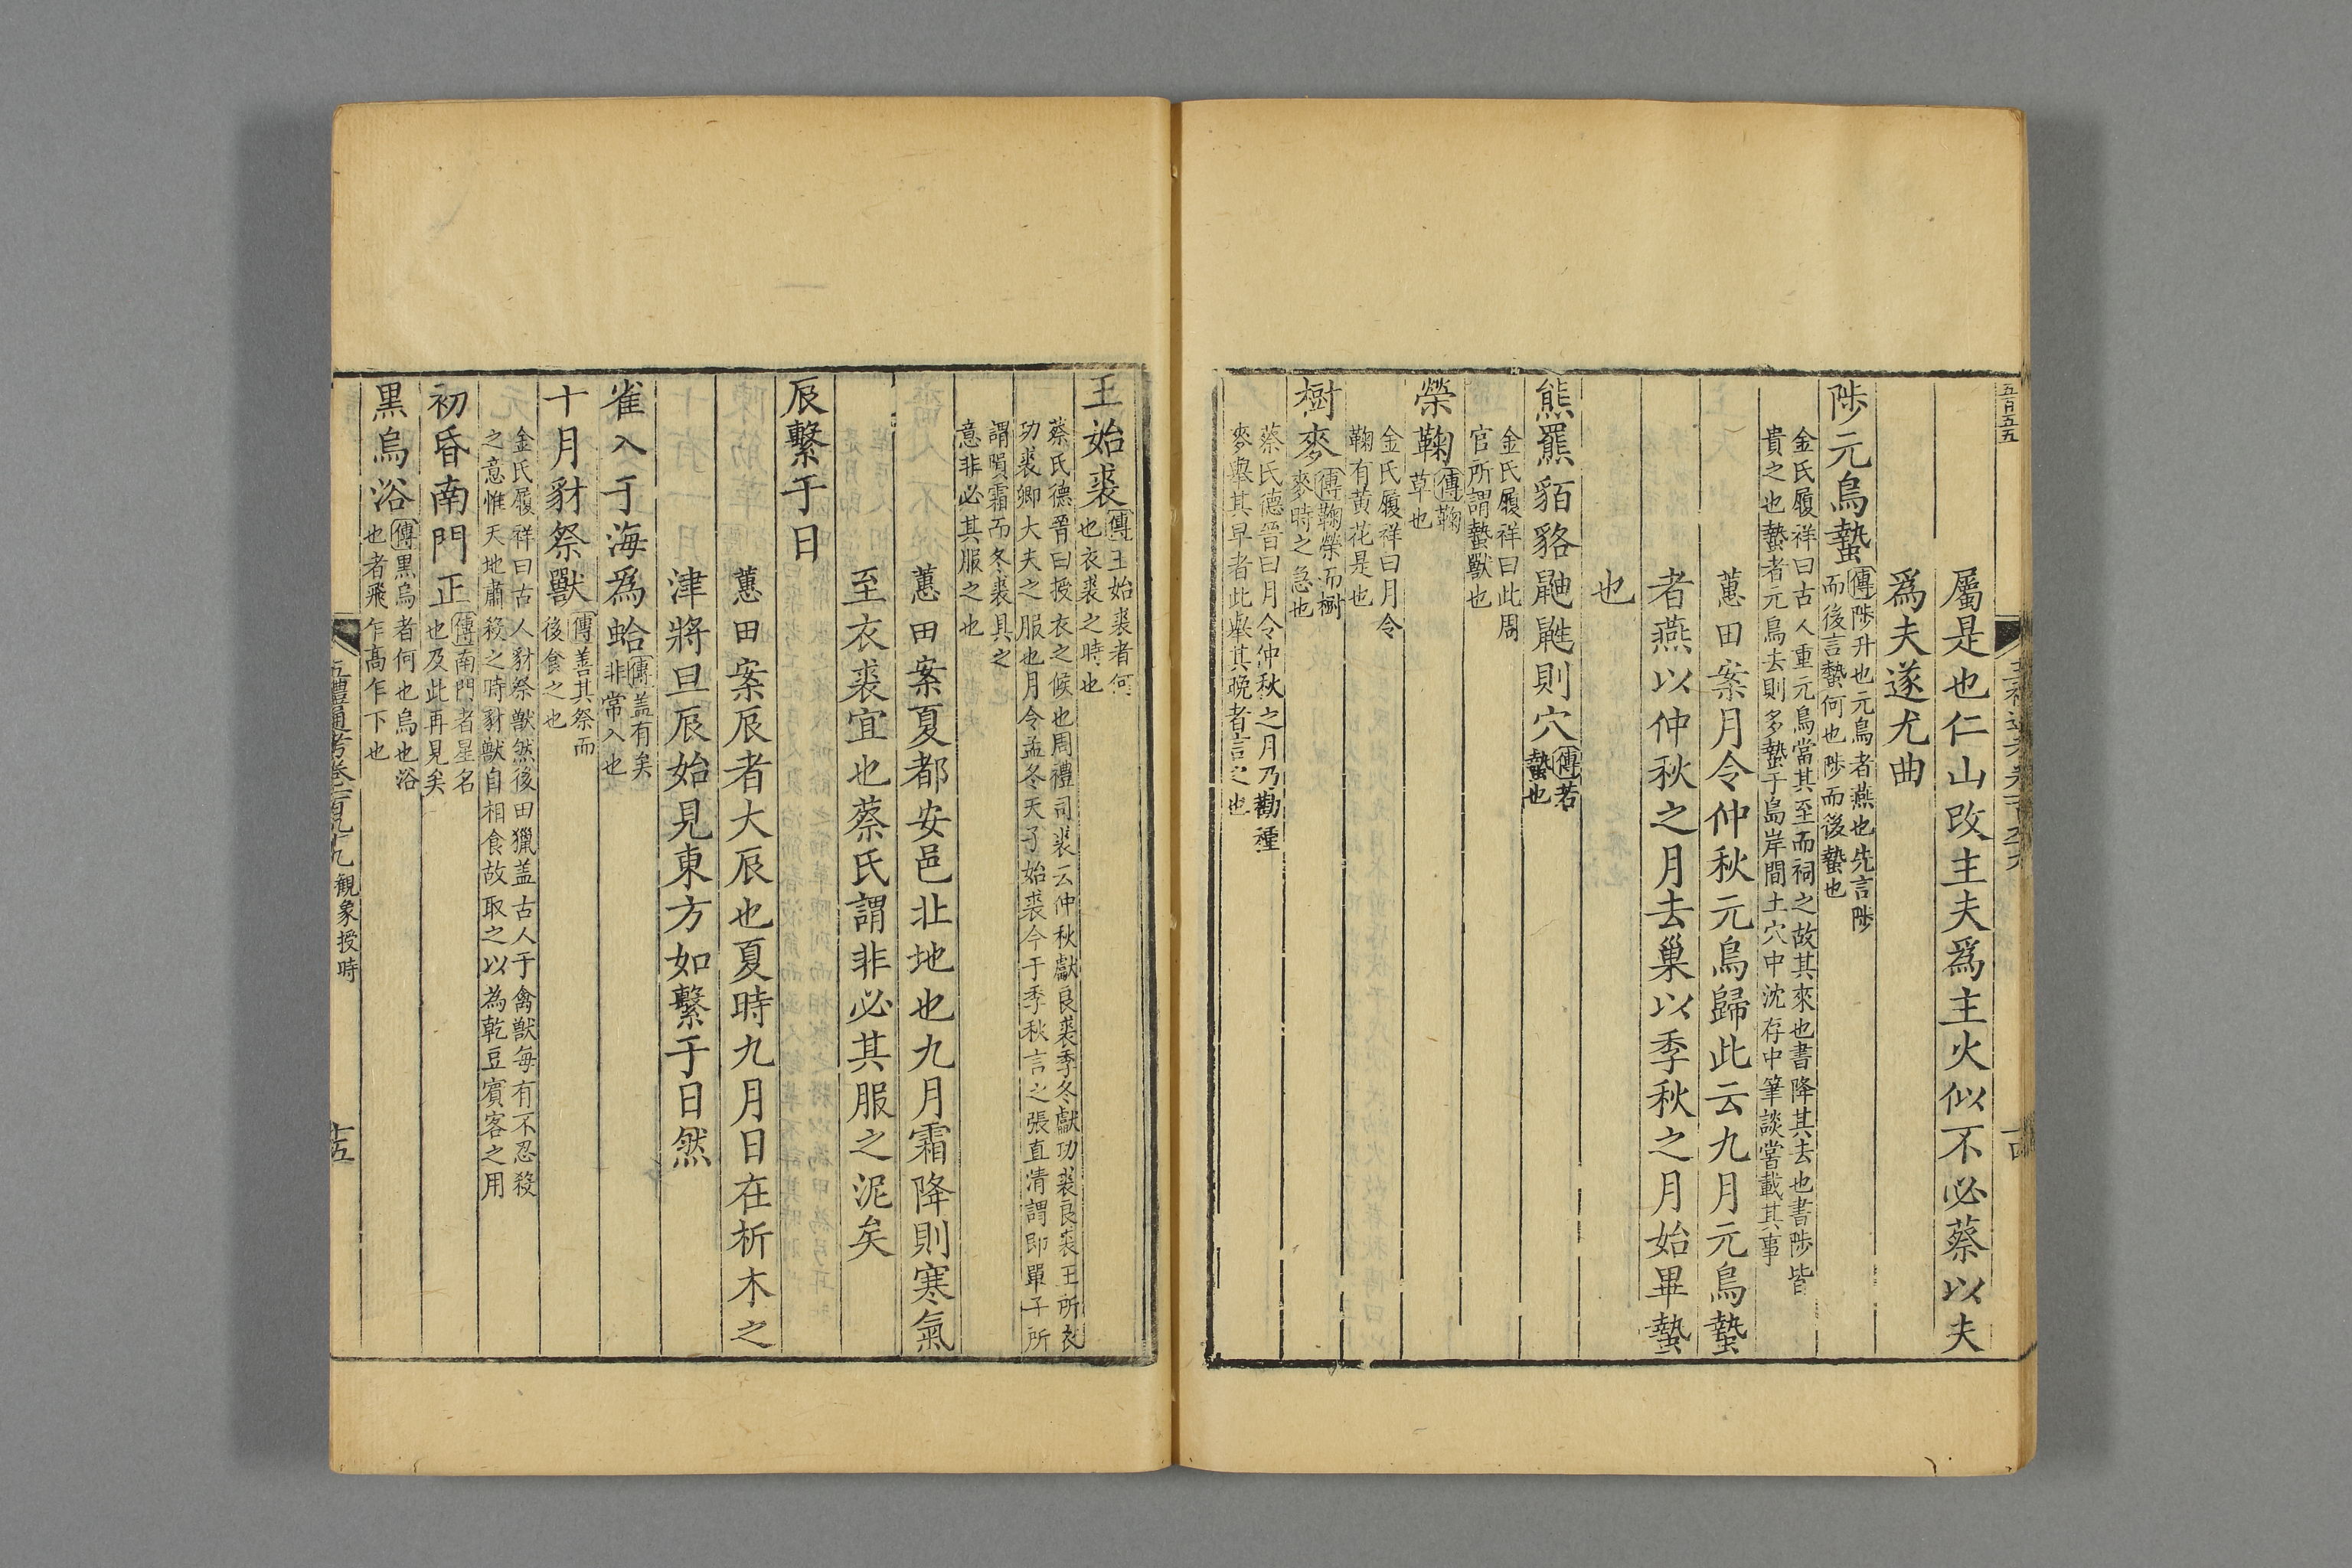 五百五五
屬是也仁山改主夫爲主火似不必蔡以夫
爲夫遂尤曲
陟元鳥蟄傳陟升也元鳥者燕也先言陟
而後言蟄何也陟而後蟄也
金氏履祥曰古人重元鳥當其至而祠之故其來也書降其去也書陟皆
貴之也蟄者元鳥去則多蟄于島岸間土穴中沈存中筆談嘗載其事
蕙田案月令仲秋元鳥歸此云九月元鳥蟄
者燕以仲秋之月去巢以季秋之月始畢蟄
也
熊羆貊貉鼬則穴傳若
蟄也
金氏履祥曰此周
官所謂蟄獸也
榮鞠傳鞠
草也
金氏履祥曰月令
鞠有黃花是也
樹麥傳鞠榮而樹
麥時之急也
蔡氏德晉曰月令仲秋之月乃勸種
麥舉其早者此舉其晚者言之也
王始裘傳王始裘者何
也衣裘之時也
蔡氏德晉曰授衣之候也周禮司裘云仲秋獻良裘季冬獻功裘良裘王所衣
功裘卿大夫之服也月令孟冬天子始裘今于季秋言之張直清謂即單子所
謂隕霜而冬裘具之
意非必其服之也
蕙田案夏都安邑北地也九月霜降則寒氣
至衣裘宜也蔡氏謂非必其服之泥矣
辰繫于日
蕙田案辰者大辰也夏時九月日在析木之
津將旦辰始見東方如繫于日然
雀入于海爲蛤傳盖有矣
非常入也
十月豺祭獸傳善其祭而
後食之也
金氏履祥曰古人豺祭獸然後田獵盖古人于禽獸每有不忍殺
之意惟天地肅殺之時豺獸自相食故取之以為乾豆賓客之用
初昏南門正傳南門者星名
也及此再見矣
黑鳥浴傳黑鳥者何也鳥也浴
也者飛乍高乍下也
五禮通考卷一百九十九 觀象授時
十五